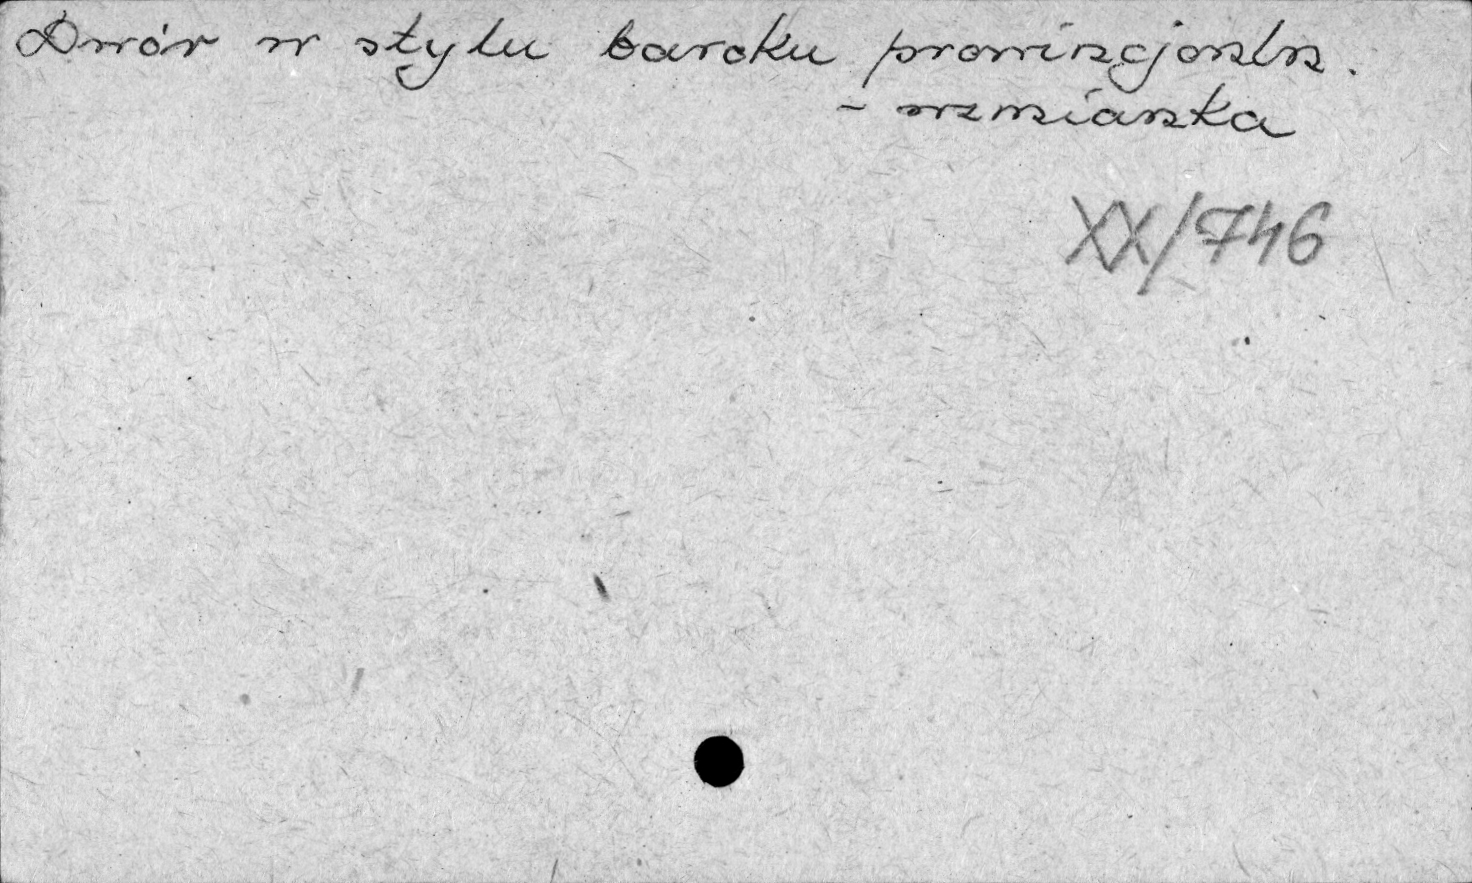 Dwór w stylu baroku prowincjonaln.
- wzmianka
XX/746